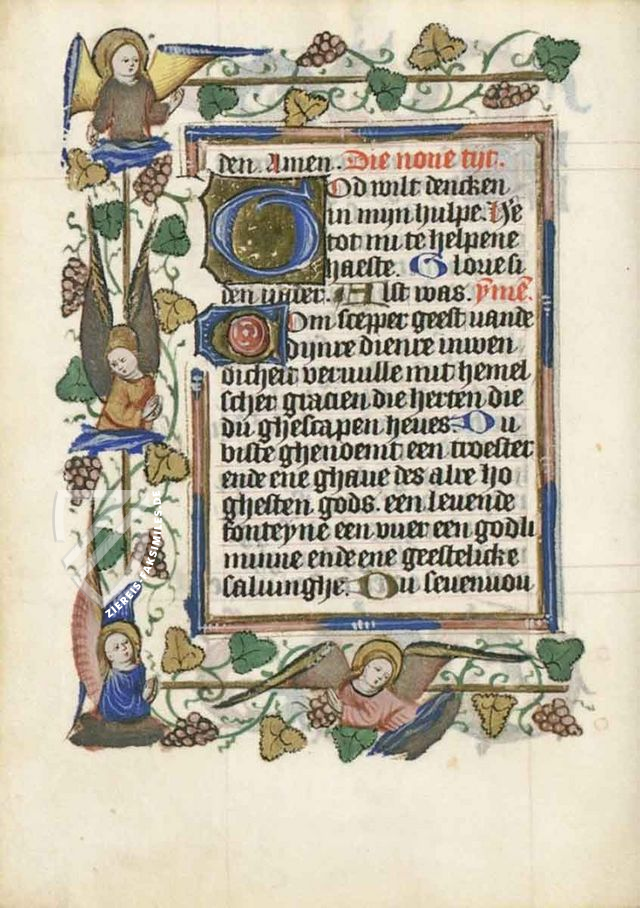 den. Amen. Die none tijt.
God wilt dencken
in mijn hulpe. He
tot mi te helpene
haeste. Glorie si
den vader. Alst was. ymē.
Com scepper geest vande
dynre dienre inwen
dicheit vervulle mit hemel
scher gracien die herten die
du ghescapen heves. Du
biste ghenoemt een troester
ende ene ghave des alre ho
ghesten gods. een levende
fonteyne een vuer een godli
minne ende ene geestelicke
salvinghe. Du sevenvou
ZIEREIS FAKSIMILES.DE